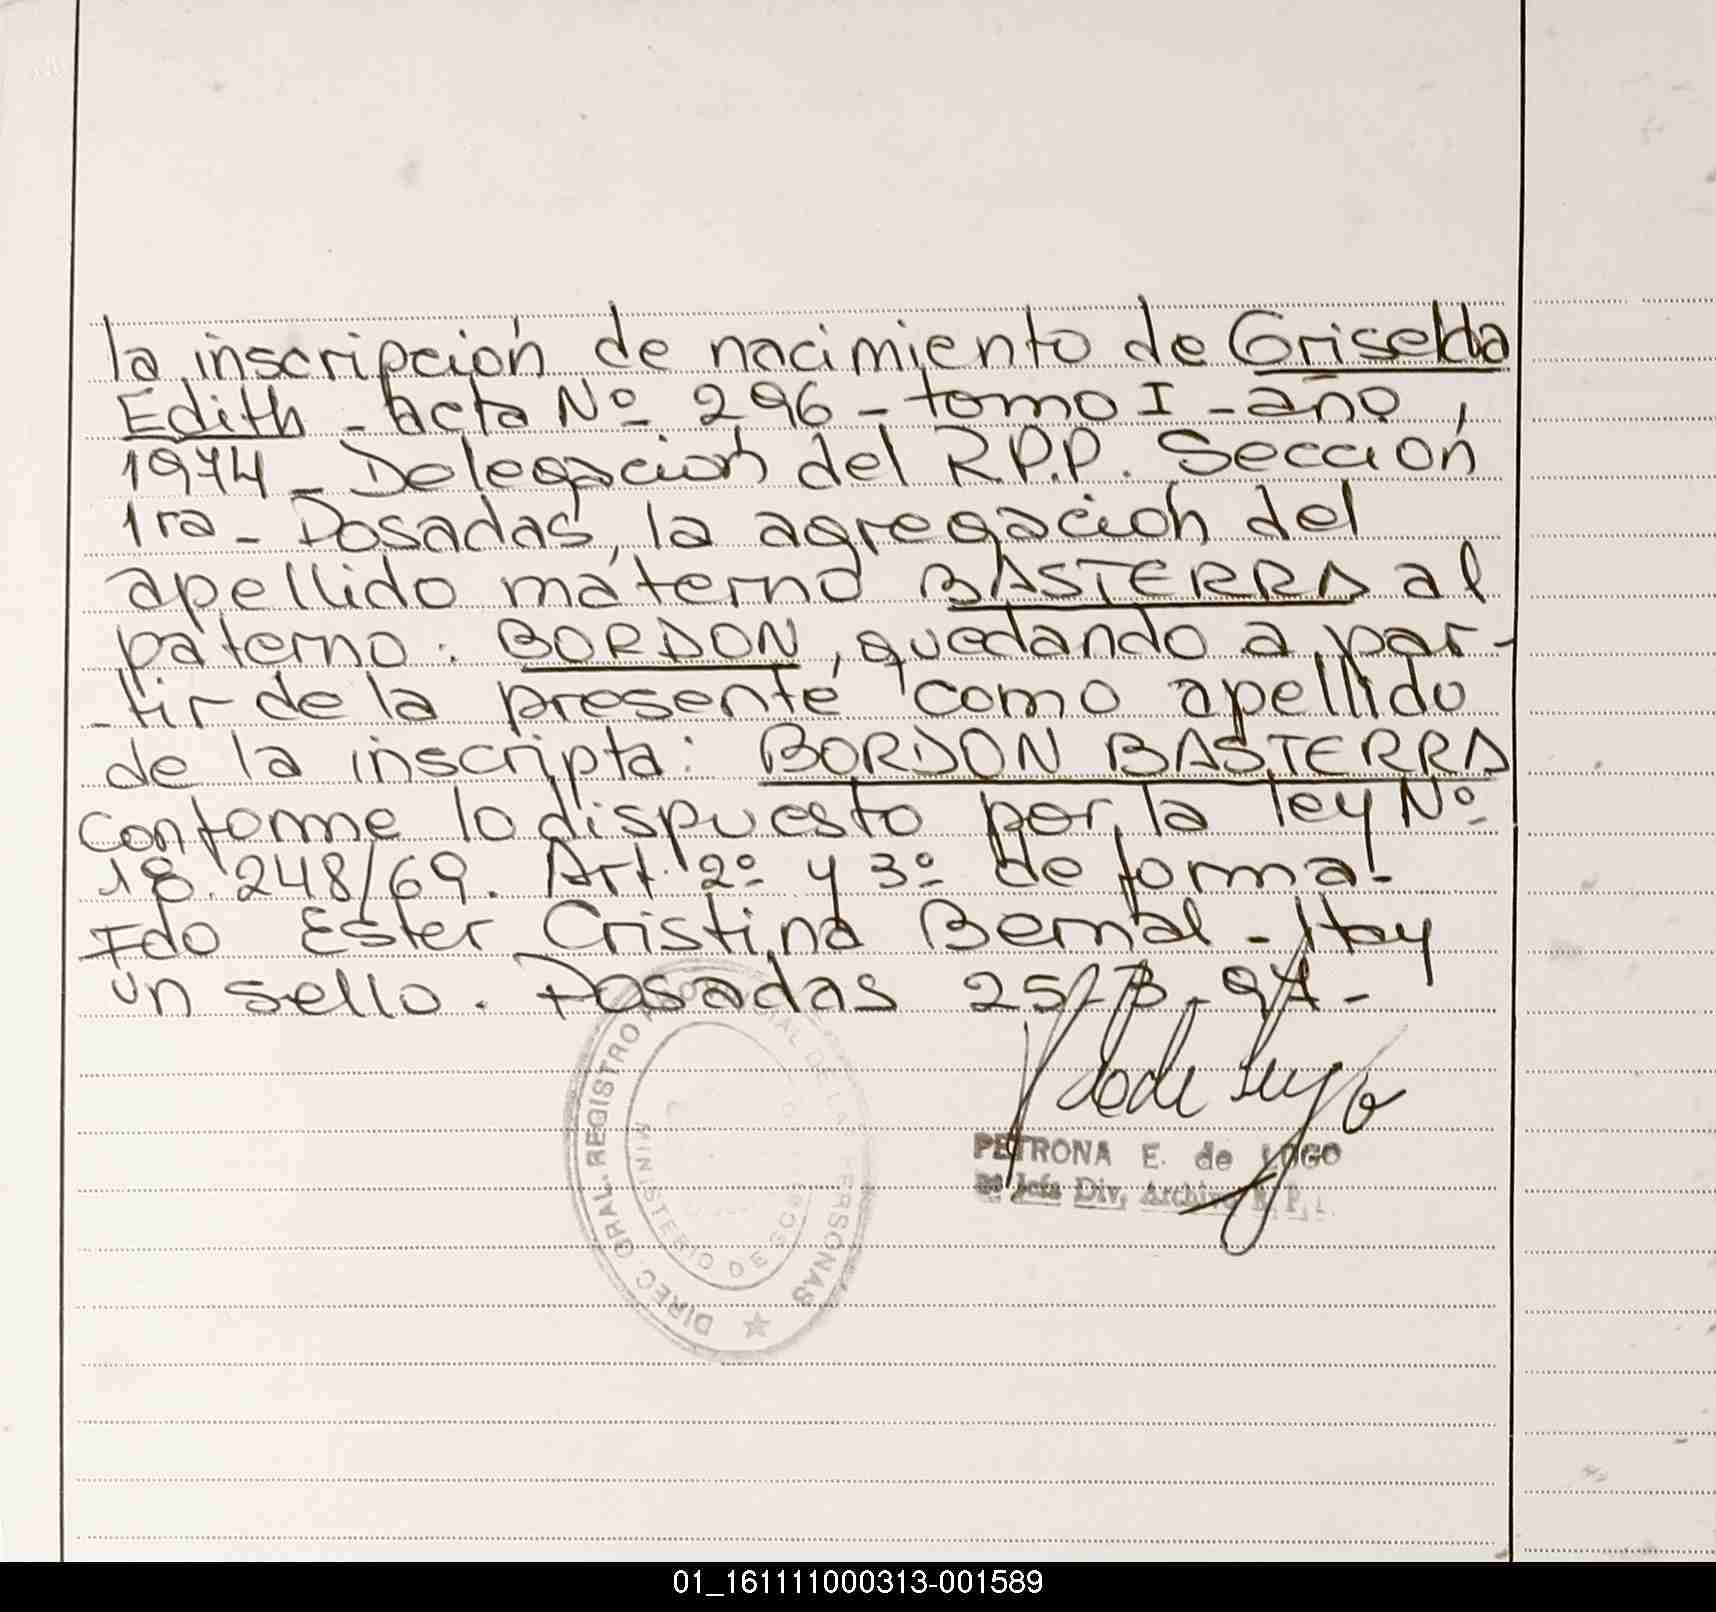 la inscripción de nacimiento de Griselda
Edith - acta Nº 296 - tomo I - año,
1974 - Delegación del R.P.P. Sección
1ra - Posadas, la agregación del
apellido materno BASTERRA al
paterno: BORDON, quedando a par-
-tir de la presente como apellido
de la inscripta: BORDON BASTERRA
conforme lo dispuesto por la ley Nº
18.248/69. Art. 2º y 3º de forma.-
Fdo Ester Cristina Bernal - Hay
un sello. Posadas 25
DIREC. GRAL. REGISTRO PROVINCIAL DE LAS PERSONAS
MINISTERIO DE
PETRONA E. de LUGO
2º Jefa Div. Archivo R. P. P.
01_161111000313-001589